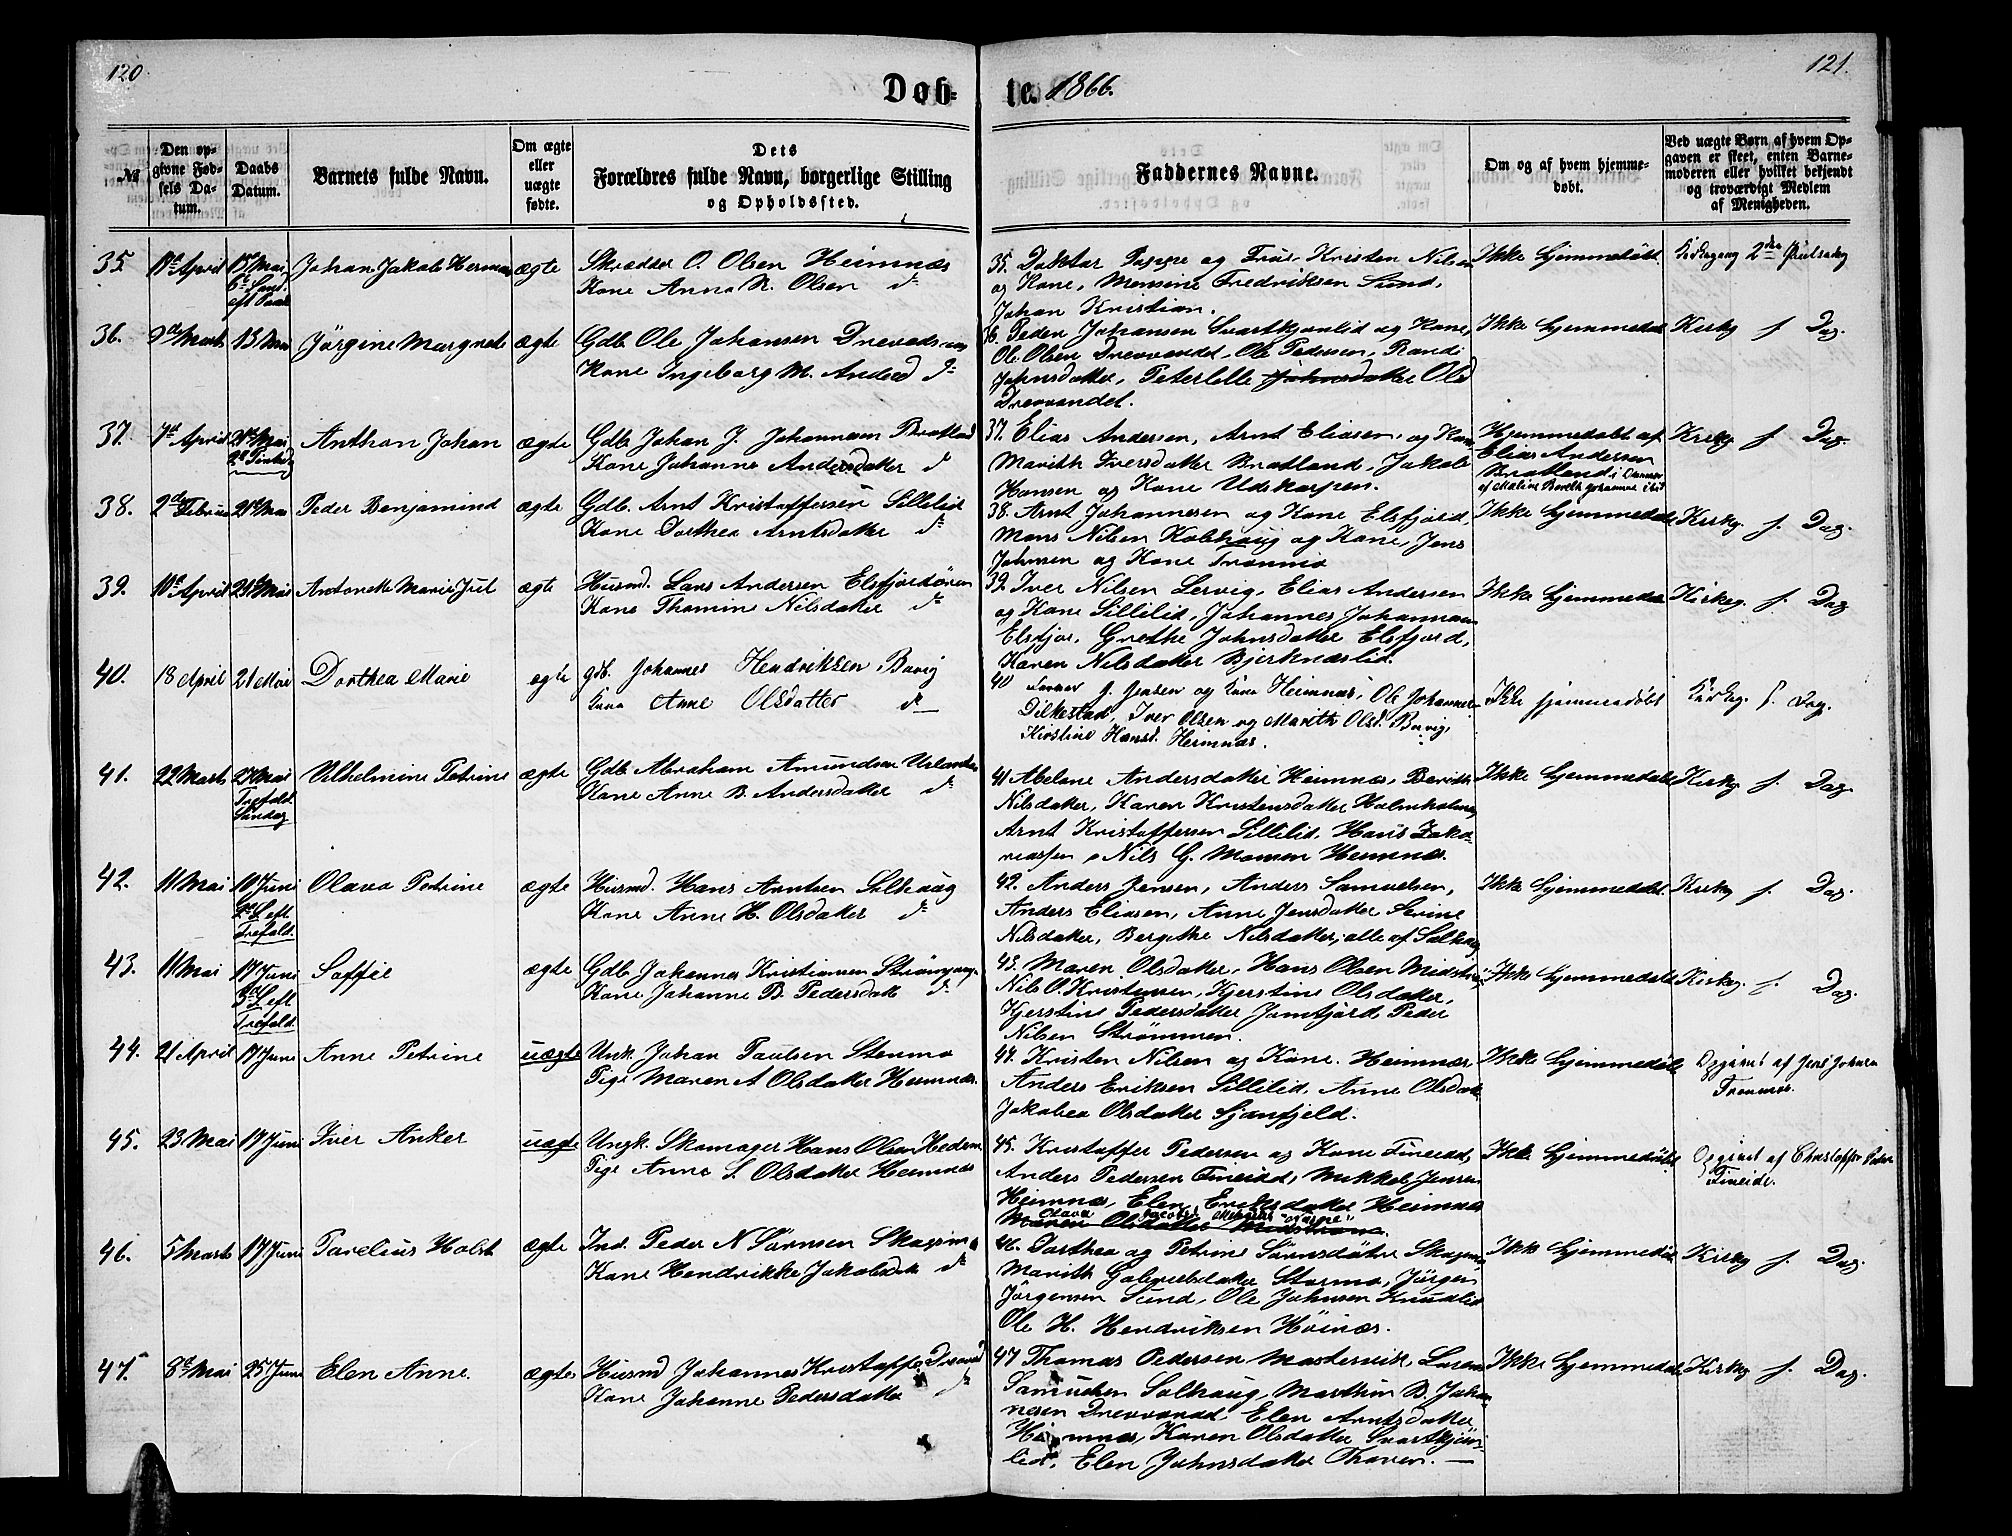 120.
121.
Døb-
te. 1866.
№
Den op-
givne Fød-
sels Da-
tum.
Daabs
Datum.
Barnets fulde Navn.
Om ægte
eller
uægte
fødte.
Dets
Forældres fulde Navn, borgerlige Stilling
og Opholdssted.
Faddernes Navne.
Om og af hvem hjemme-
døbt.
Ved uægte Børn af hvem Op-
gaven er skeet, enten Barne-
moderen eller hvilket bekjendt
og troværdigt Medlem
af Menigheden.
35. April Mai Johan Jakob Herman ægte
Skrædder O. Olsen Heimnæs
Kone Anna N. Olsen d
35. Doktor og Frue, Kristen Nilsen
og Kone, Mensine Fredriksen Sund,
Johan Kristian.
Ikke hjemmedøbt
36. Marts 13 Mai Jörgine Margrete ægte
Gdb. Ole Johansen
Kone Ingeborg M. Andersd d
36. Peder Johansen og Kone,
Ole Olsen Drevvandet, Ole Pedersen, Randi
Johnsdatter, Peterlelle Johnsdatter Old
Drevvandet.
Ikke hjemmedøbt Kirkg f. Dag.
37. 7de April 21de Mai Anthon Johan ægte
Gdb. Johan J. Johannesen Bratland
Kone Johanna Andersdatter d
37. Elias Andersen, Arnt Eliasen, og Kone
Marith Iversdatter Bratland, Jakob
Hansen og Kone Udskarpen.
Hjemmedøbt af
Elias Andersen
Bratland
Kirkg f. Dag.
38. 2d Februar 21de Mai Peder Benjamind ægte
Gdb. Arnt Kristoffersen Lillelid
Kone Dorthea Arntsdatter d
38. Arnt Johannesen og Kone Elsfjord,
Mons Nilsen Kolhaug og Kone, Jens
Johnsen og Kone
Ikke hjemmedøbt Kirkg. f. Dag.
39. 10de April 21de Mai Antonette Marie Jul ægte
Husmd. Lars Andersen Elsfjordören
Kone Thomine Nilsdatter d
39. Iver Nilsen Lervig, Elias Andersen
og Kone Lillelid, Johannes Johannesen
Elsfjor, Grethe Johnsdatter Elsfjord,
Karen Nilsdatter Bjerknæslid.
Ikke hjemmedøbt Kirkeg. f. Dag
40. 18 April 21 Mai Dorthea Marie ægte
gdb. Johannes Hendriksen Bavig
Kone Anne Olsdatter d
40 J. Jensen og Kone Heimnæs, Ole Johannes-
Dilkestad, Iver Olsen og Marith Olsd. Bavig,
Kirstine Hansd. Heimnæs.
Ikke hjemmedøbt Kirkeg. f. Dag.
41. 22 Marts 27 Mai
Trefold.
Søndag
Vilhelmine Petrine ægte
Gdb Abraham Amundsen
Kone Anne B. Andersdatter d
41 Abelone Andersdatter Heimnæs, Berith
Nilsdatter, Karen Kristensdatter Holmholmen
Arnt Kristoffersen Lillelid, Hans Zaka-
riassen, Nils G. Monsen Heimnæs.
Ikke hjemmedøbt Kirkg. f. Dag.
42. 11 Mai 10 Juni
2d S. eft.
Trefold.
Olava Petrine ægte
Husmd. Hans Arntsen Silhaug
Kone Anne H. Olsdatter d
42. Anders Jensen, Anders Samuelsen,
Anders Eliasen, Anne Jensdatter Serine
Nilsdatter, Bergithe Nilsdatter, alle af Solhaug
Ikke hjemmedøbt Kirkg f. Dag.
43. 11 Mai 17 Juni
3d S. eft
Trefold.
Soffie ægte
Gdb Johannes Kristiansen
Kone Johanne B. Pedersdatter d
43. Maren Olsdatter, Hans Olsen
Nils O. Kristensen, Kjerstine Olsdatter,
Kjerstine Pedersdatter Jamtjord Peder
Nilsen Strømmen.
Ikke hjemmedøbt Kirkeg. f. Dag.
44. 21 April 17 Juni Anne Petrine uægte
Unk. Johan Paulsen Stenmo
Pige Maren A Olsdatter Heimnæs.
44. Kristen Nilsen og Kone. Heimnæs
Anders Eriksen Lillelid, Anne Olsdatter
Jakobea Olsdatter Sjonfjeld.
Ikke hjemmedøbt
Opgivet af Jens Johnsen
45. 23 Mai 17 Juni Iver Anker uægte
Ungk. Skomager Hans Olsen
Pige Anne S. Olsdatter Heimnæs
45. Kristoffer Pedersen og Kone Fineid,
Anders Pedersen Fineid, Mikkel Jensen
Heimnæs, Elen Eriksdatter Heimnæs
Maren Olsdatter
Ikke hjemmedøbt
Opgivet af Christoffer Peders
Fineide.
46. 5 Marts 17 Juni Parelius Holst ægte
Ind. Peder N Sørensen
Kone Hendrikke Jakobsdtr d
46. Dorthea og Petrine
Marith Gabrielsdatter Stormo, Jörgen
Jörgensen Sund, Ole Johnsen
Ole H. Hendriksen Höinæs.
Ikke hjemmedøbt Kirkeg f. Dag.
47. 8de Mai 25 Juni Elen Anne. ægte
Husmd Johannes Kristoffer
Kone Johanne Pedersdatter d
47 Thomas Pedersen
Samuelsen Solhaug, Marthin B. Johan-
nesen Drevvandd Elen Arntsdatter
Heimnæs, Karen Olsdatter Svartkjön-
lid, Elen Johnsdatter
Ikke hjemmedøbt Kirkeg f. Dag.